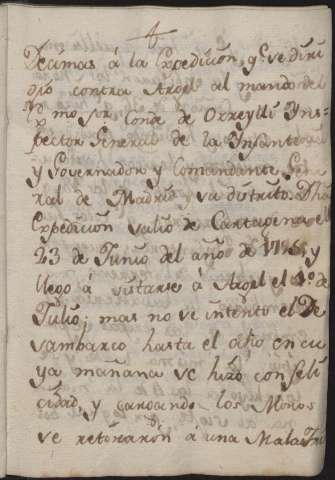 Decimas á la Expedicion, q.e se diri
gio contra Argel al mando del
Ex.mo s.or Conde de Orreylli Yns-
pector General de la Ynfanteria
y Governador y Comandante Gene
ral de Madrid y su distrito. Dha
Expedicion salio de Cartagena el
23 de Junio del año de y
llego á vistarse á Argel el 1.º de
Julio; mas no se intentó el De
sambarco hasta el ocho en cu
ya mañana se hizo con feli
cidad, y cargando los Moros
se retiraron á una Mala